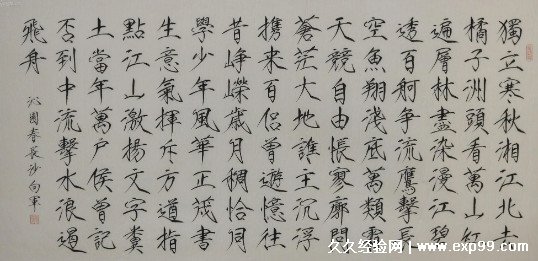 獨立寒秋湘江北去
橘子洲頭看萬山紅
遍層林盡染漫江碧
透百舸爭流鷹擊長
空魚翔淺底萬類霜
天競自由悵寥廓問
蒼茫大地誰主沉浮
攜來百侶曾遊憶往
昔崢嶸歲月稠恰同
學少年風華正茂書
生意氣揮斥方遒指
點江山激揚文字糞
土當年萬戶侯曾記
否到中流擊水浪遏
飛舟
沁園春長沙向軍
久久经验网
www.exp99.com